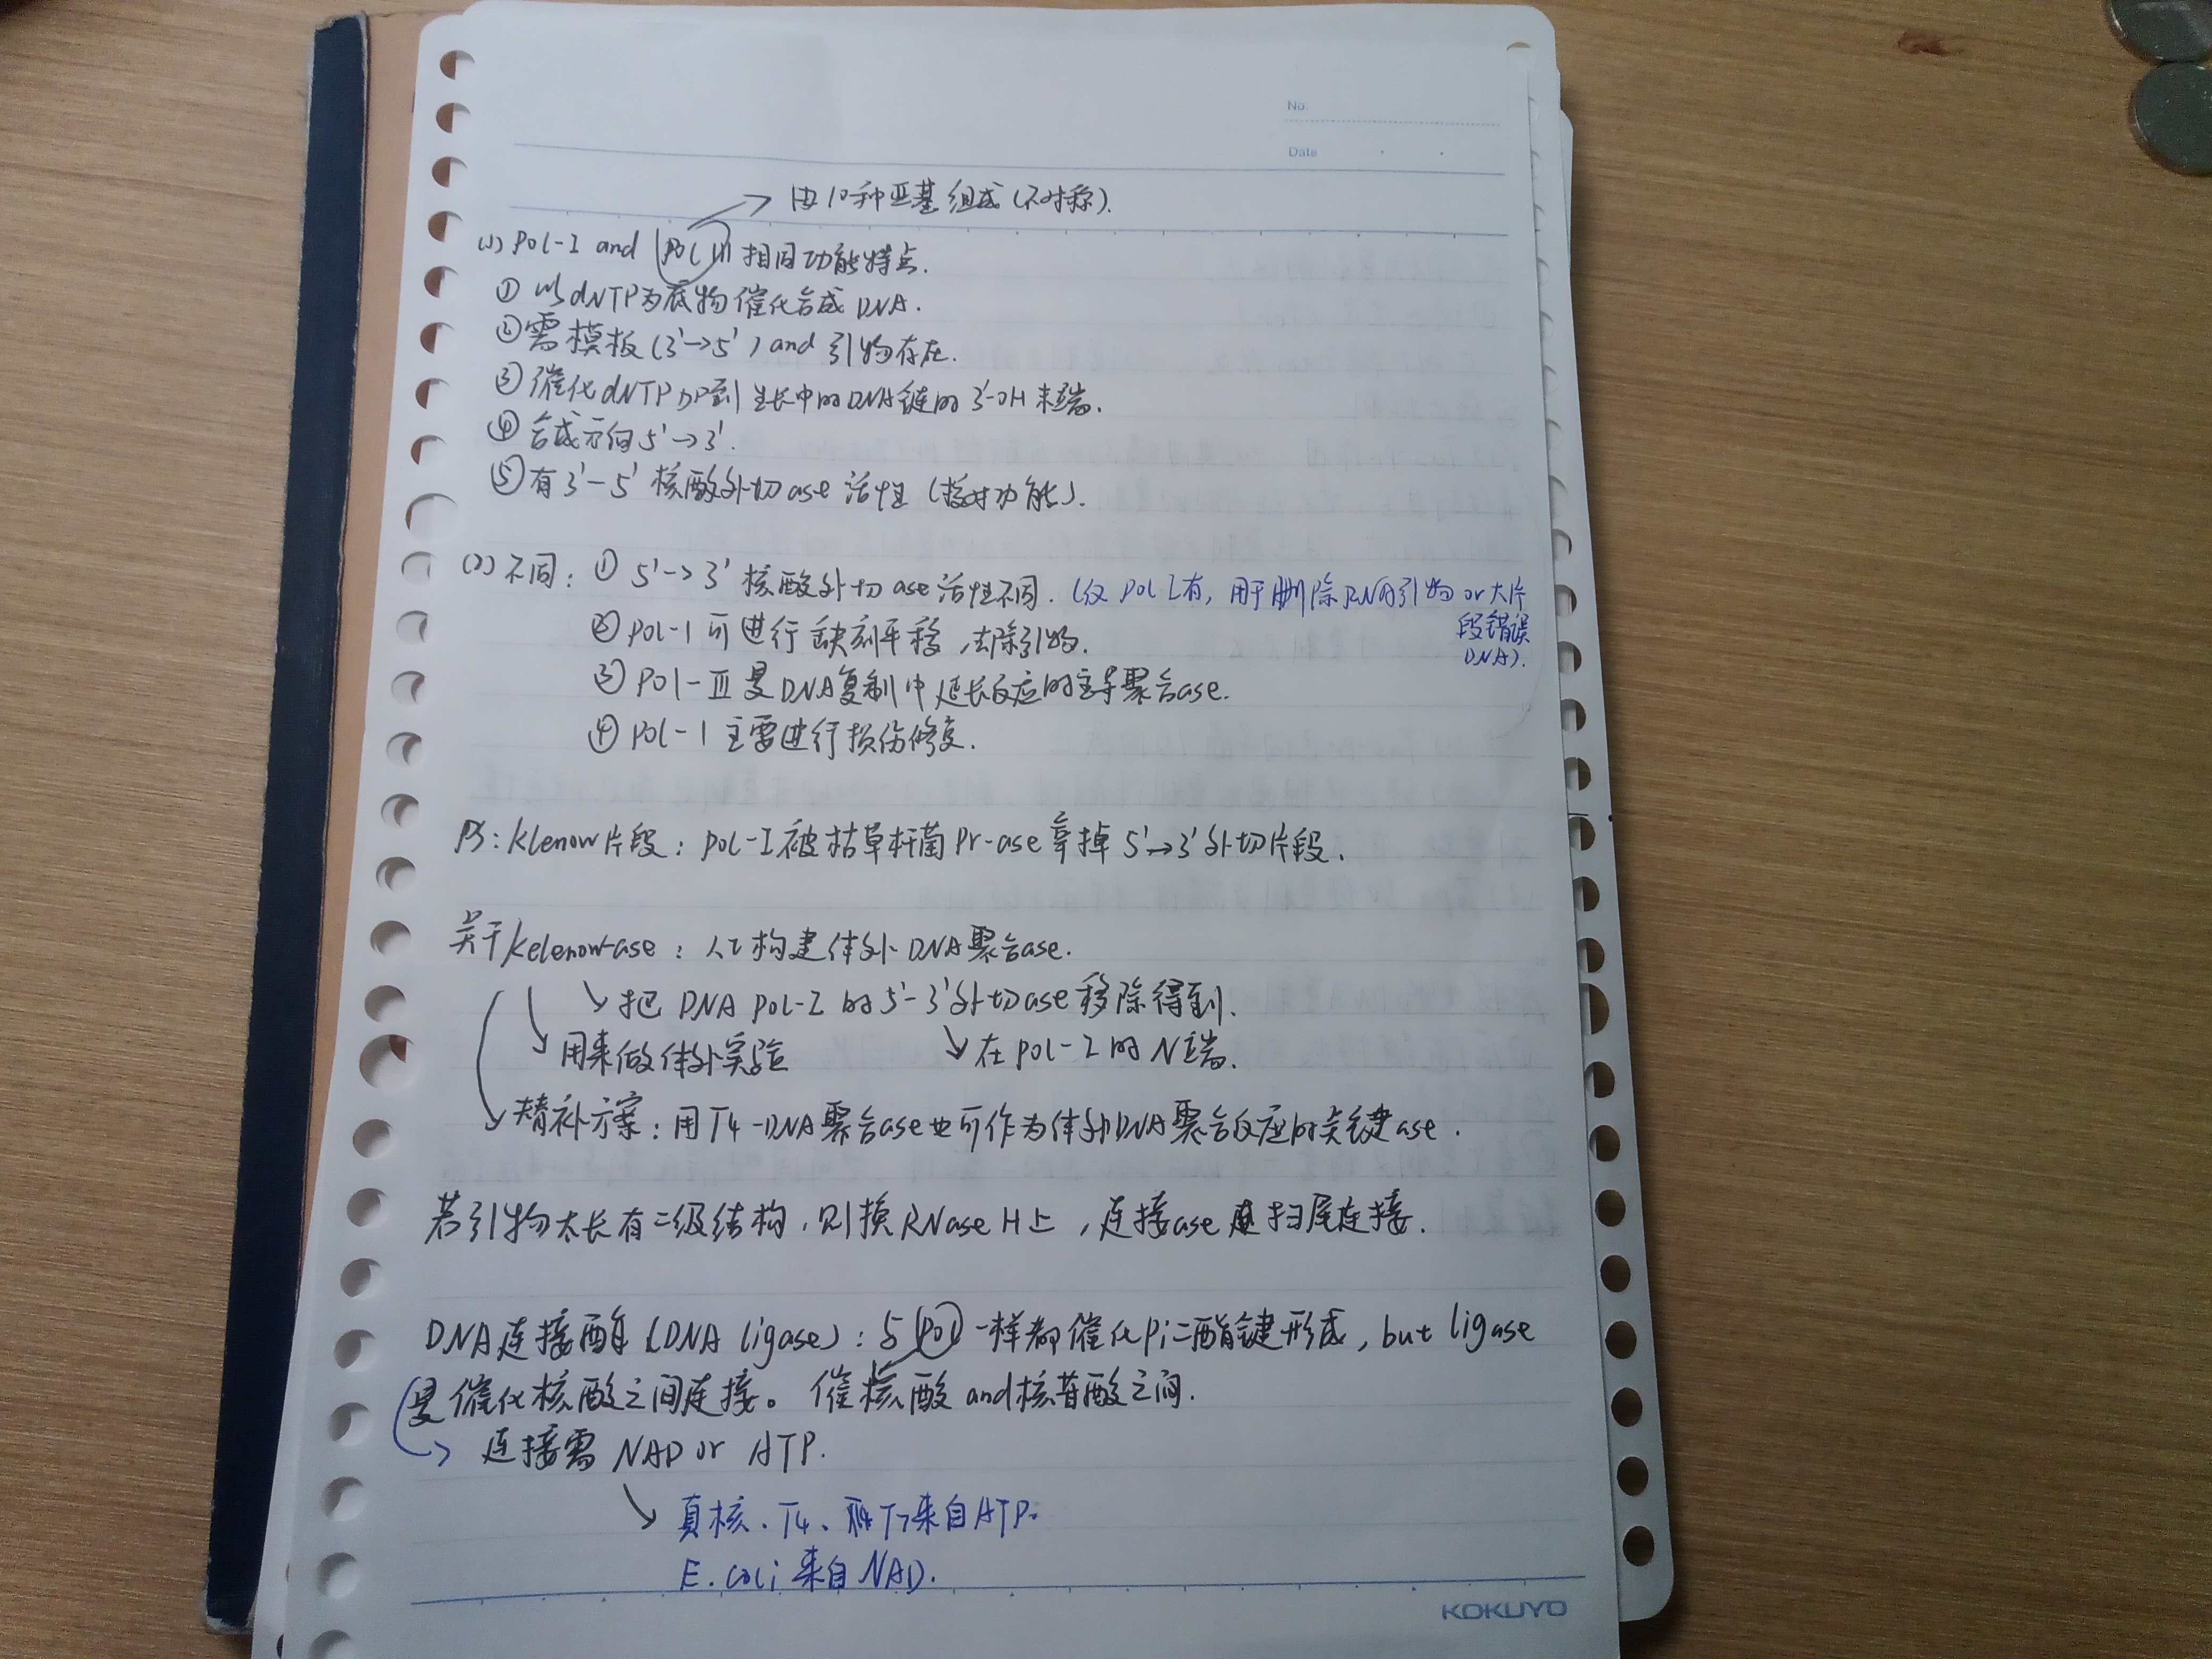 No.
Date
由10种亚基组成(不对称).
(1) Pol-I and Pol III 相同功能特点.
① 以dNTP为底物催化合成DNA.
②需模板(3'→5') and 引物存在.
③催化dNTP加到生长中的DNA链的3'-OH末端.
④ 合成方向5'→3'.
⑤有3'-5'核酸外切ase活性(校对功能).
(2)不同: ① 5'->3'核酸外切ase活性不同. (仅Pol I有, 用于删除RNA引物or大片
段错误
DNA).
② Pol-I 可进行缺刻平移,去除引物.
③ Pol-III是DNA复制中延长反应的主导聚合ase.
④ Pol-I 主要进行损伤修复.
PS: Klenow片段: Pol-I被枯草杆菌Pr-ase 掉5'→3'外切片段.
关于Kelenow-ase: 人工构建体外DNA聚合ase.
把DNA Pol-I的5'-3'外切ase移除得到.
用来做体外实验
在Pol-I的N端.
替补方案: 用T4-DNA聚合ase也可作为体外DNA聚合反应的关键ase.
若引物太长有二级结构,则换RNase H上,连接ase 扫尾连接.
DNA连接酶(DNA ligase): 与Pol一样都催化Pi二酯键形成, but ligase
是催化核酸之间连接。 催核酸and核苷酸之间.
连接需NAD or ATP.
真核、T4、和T7来自ATP.
E. coli 来自NAD.
KOKUYO